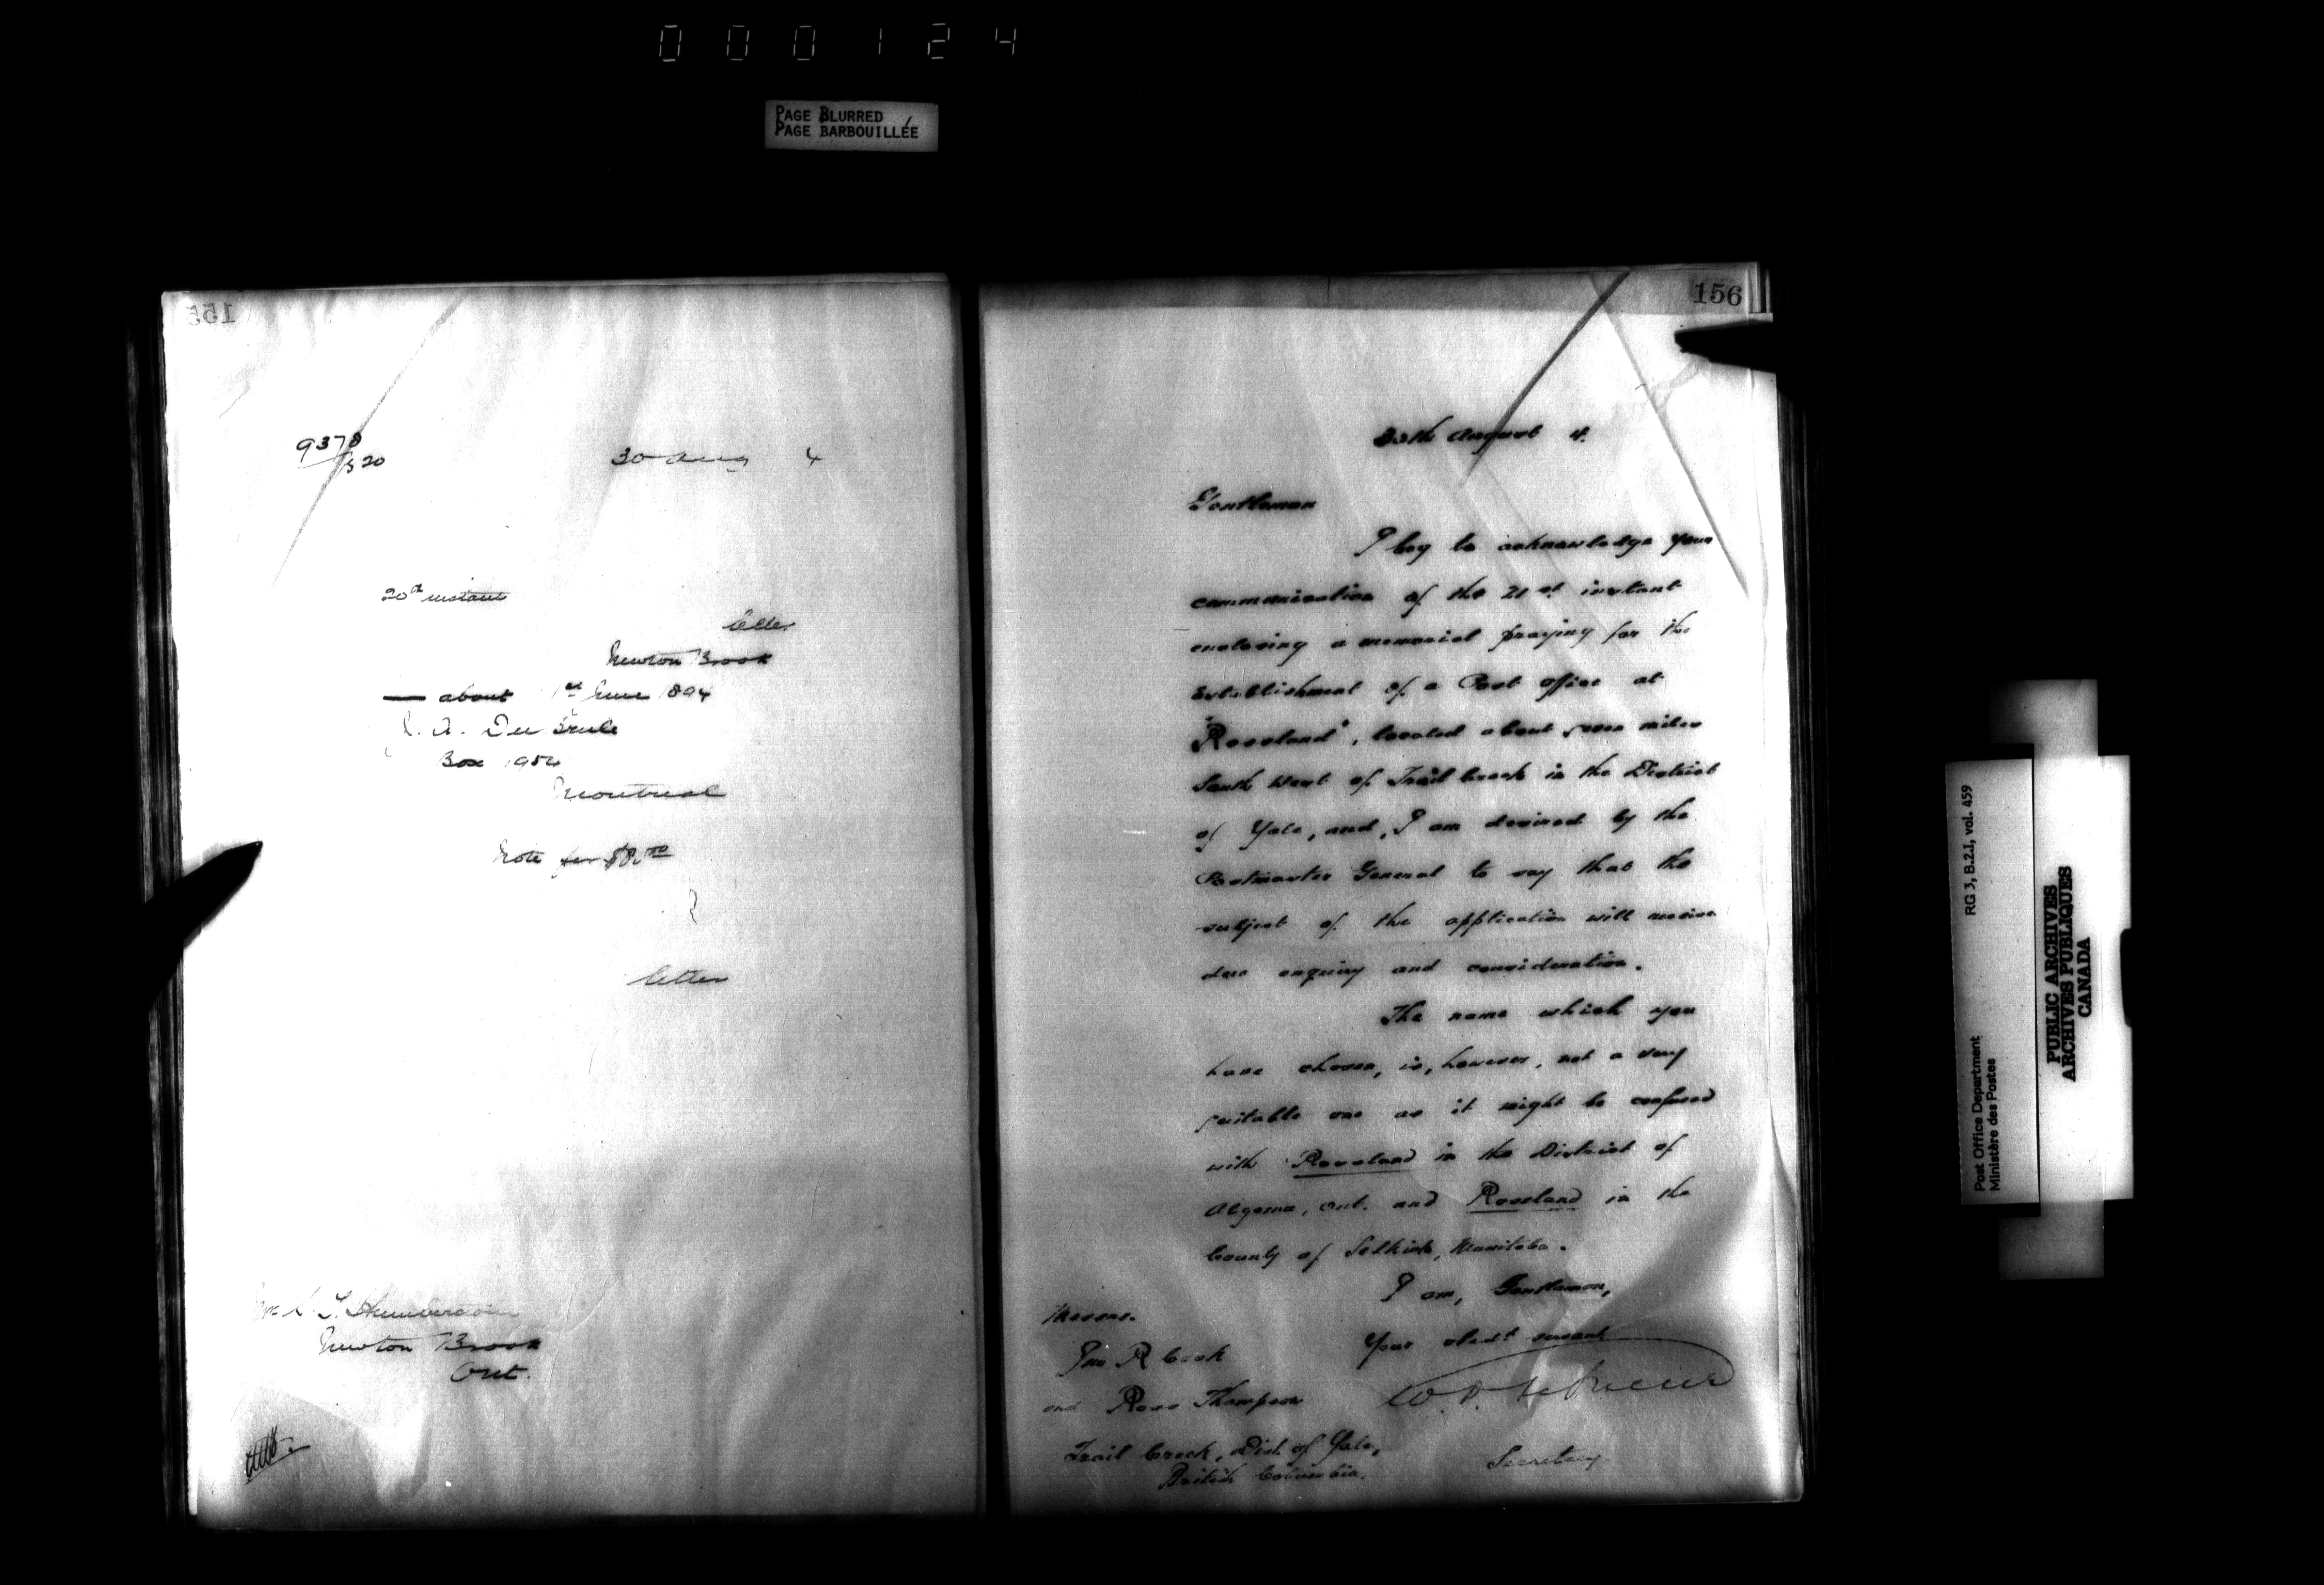 000124
PAGE BLURRED
PAGE BARBOUILLÉE
155
9378
520
30 Aug 4
20th instant
letter
Newton Brook
— about 1st June 1894
A. Du Brule
Box 1954
Montreal
Note for
letter
Newton Brook
Ont.
156
30th August 4.
Gentlemen
I beg to acknowledge your
communication of the 21st instant
enclosing a memorial praying for the
establishment of a Post office at
"Rossland", located about seven miles
South West of Trail Creek in the District
of Yale, and, I am desired by the
Postmaster General to say that the
subject of the application will receive
due enquiry and consideration.
The name which you
have chosen, is, however, not a very
suitable one as it might be confused
with Rossland in the District of
Algoma, Ont. and Roseland in the
County of Selkirk, Manitoba.
I am, Gentlemen,
Your obedt servant
Messrs.
Jno R Cook
and Ross Thompson
Trail Creek, Dist. of Yale,
British Columbia.
Secretary.
RG 3, B.2.I, vol. 459
Post Office Department
Ministère des Postes
PUBLIC ARCHIVES
ARCHIVES PUBLIQUES
CANADA